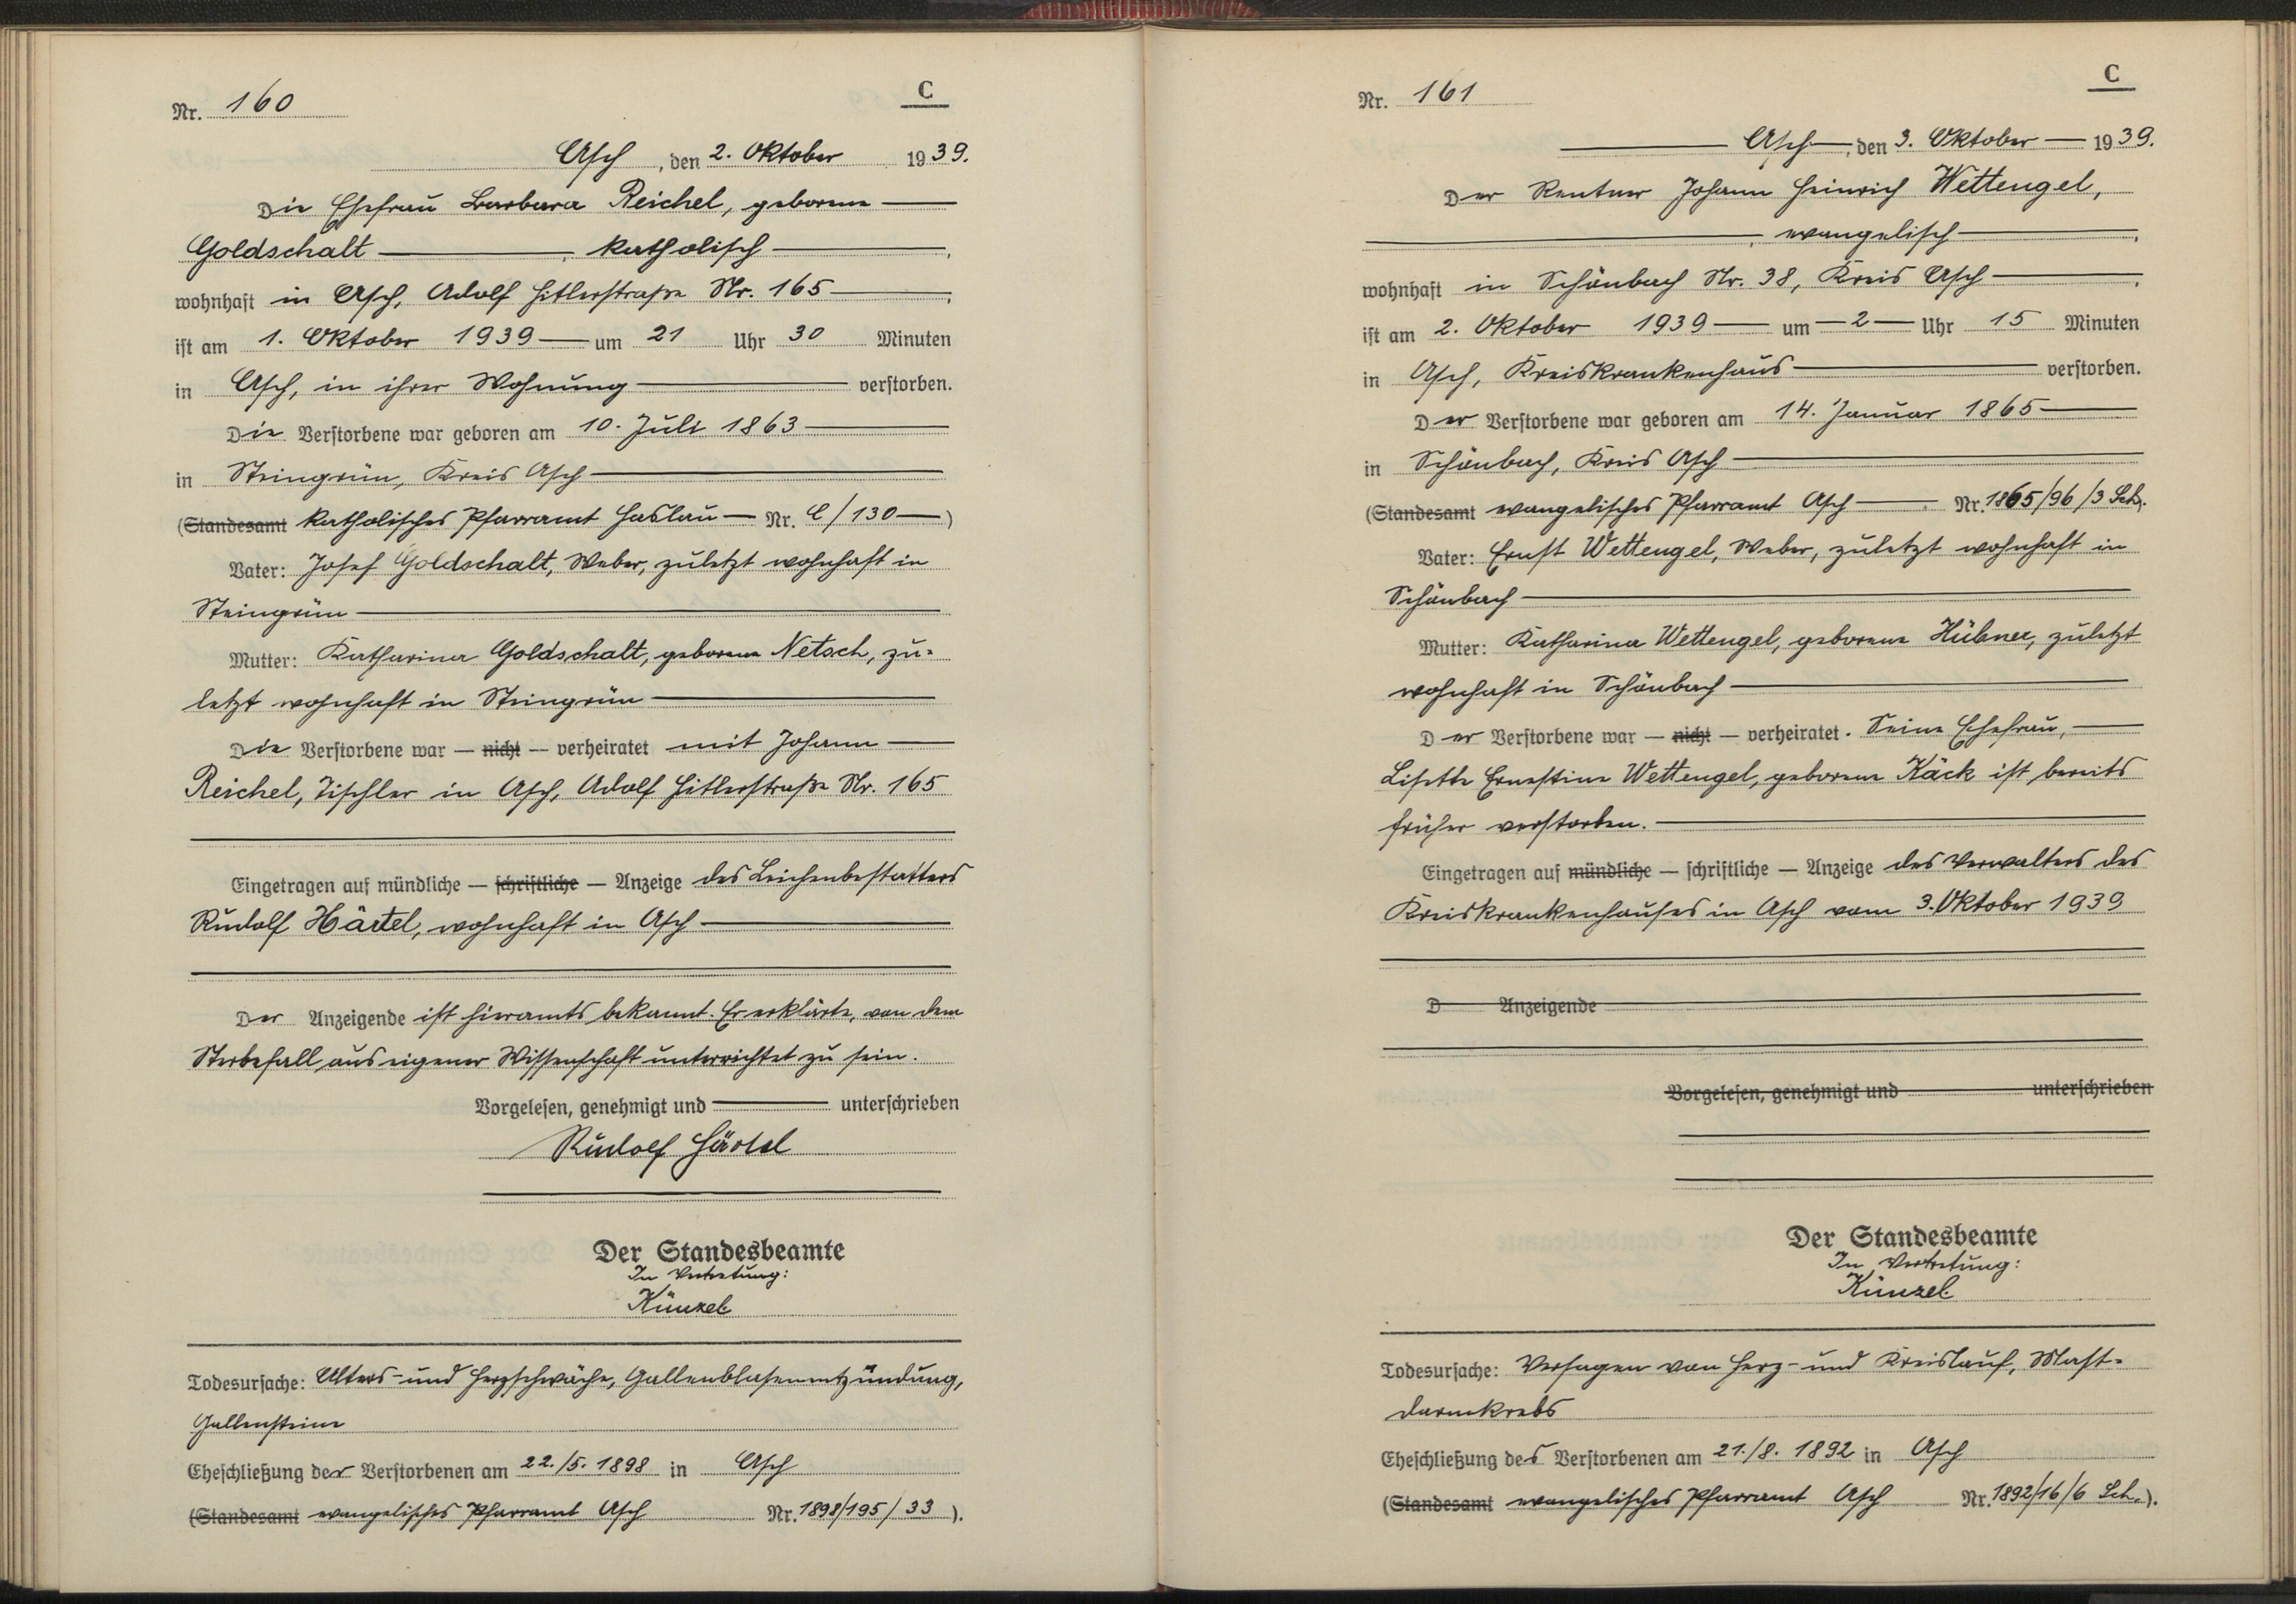 C
Nr. 160
Asch, den 2. Oktober 1939.
Die Ehefrau Barbara Reichel, geborene
Goldschalt, katholisch,
wohnhaft in Asch, Adolf Hitlerstraße Nr. 165,
ist am 1. Oktober 1939 um 21 Uhr 30 Minuten
in Asch, in ihrer Wohnung verstorben.
Die Verstorbene war geboren am 10. Juli 1863
in Steingrün, Kreis Asch
(Standesamt katholisches Pfarramt Haslau Nr. C/130)
Vater: Josef Goldschalt, Weber, zuletzt wohnhaft in
Steingrün
Mutter: Katharina Goldschalt, geborene Netsch, zu-
letzt wohnhaft in Steingrün
Die Verstorbene war — nicht — verheiratet mit Johann
Reichel, Tischler in Asch, Adolf Hitlerstraße Nr. 165
Eingetragen auf mündliche — schriftliche — Anzeige des Leichenbestatters
Rudolf Härtel, wohnhaft in Asch
Der Anzeigende ist hieramts bekannt. Er erklärte, von dem
Sterbefall aus eigener Wissenschaft unterrichtet zu sein.
Vorgelesen, genehmigt und unterschrieben
Rudolf Härtel
Der Standesbeamte
In Vertretung:
Künzel
Todesursache: Alters- und Herzschwäche, Gallenblasenentzündung,
Gallensteine
Eheschließung der Verstorbenen am 22./5. 1898 in Asch
(Standesamt evangelisches Pfarramt Asch Nr. 1898/195/33).
C
Nr. 161
Asch, den 3. Oktober 1939.
Der Rentner Johann Heinrich Wettengel,
, evangelisch,
wohnhaft in Schönbach Nr. 38, Kreis Asch,
ist am 2. Oktober 1939 um 2 Uhr 15 Minuten
in Asch, Kreiskrankenhaus verstorben.
Der Verstorbene war geboren am 14. Januar 1865
in Schönbach, Kreis Asch
(Standesamt evangelisches Pfarramt Asch. Nr. 1865/96/3 Sch.
Vater: Ernst Wettengel, Weber, zuletzt wohnhaft in
Schönbach
Mutter: Katharina Wettengel, geborene Hübner, zuletzt
wohnhaft in Schönbach
Der Verstorbene war — nicht — verheiratet. Seine Ehefrau,
Lisette Ernestine Wettengel, geborene Käck ist bereits
früher verstorben.
Eingetragen auf mündliche — schriftliche — Anzeige des Verwalters des
Kreiskrankenhauses in Asch vom 3. Oktober 1939
D Anzeigende
Vorgelesen, genehmigt und unterschrieben
Der Standesbeamte
In Vertretung:
Künzel
Todesursache: Versagen von Herz- und Kreislauf, Mast-
darmkrebs
Eheschließung des Verstorbenen am 21./8. 1892 in Asch
(Standesamt evangelisches Pfarramt Asch Nr. 1892/16/6 Sch.).